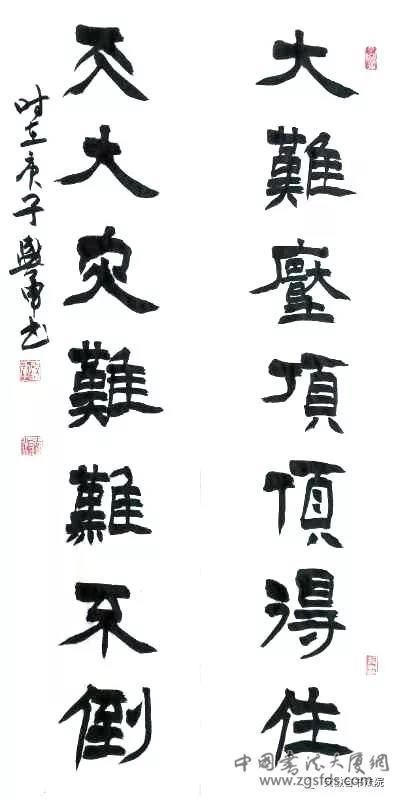 大難壓頂頂得住
天大災難難不倒
时在庚子勇书
中国書法大厦網
www.zgsfds.com